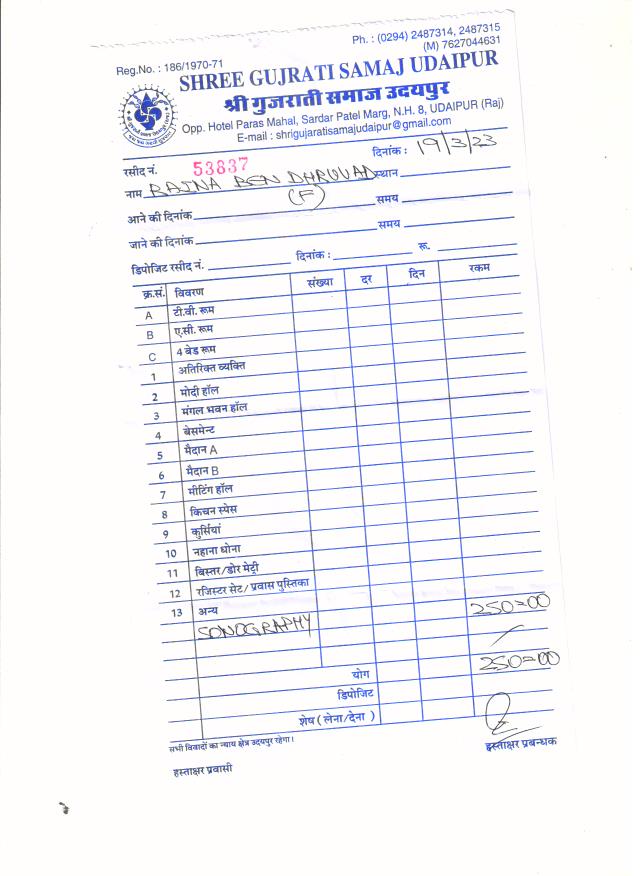 Ph. : (0294) 2487314, 2487315
(M) 7627044631
Reg.No. : 186/1970-71
SHREE GUJRATI SAMAJ UDAIPUR
श्री गुजराती समाज उदयपुर
Opp. Hotel Paras Mahal, Sardar Patel Marg, N.H. 8, UDAIPUR (Raj)
E-mail : shrigujaratisamajudaipur@gmail.com
रसीद नं. 53837 दिनांक : 19/3/23
नाम RAJNA BEN DHRUVAD स्थान
(F)
आने की दिनांक समय
जाने की दिनांक समय
डिपोजिट रसीद नं. दिनांक : रू.
क्र.सं. विवरण संख्या दर दिन रकम
A टी.वी. रूम
B ए.सी. रूम
C 4 बेड रूम
1 अतिरिक्त व्यक्ति
2 मोदी हॉल
3 मंगल भवन हॉल
4 बेसमेन्ट
5 मैदान A
6 मैदान B
7 मीटिंग हॉल
8 किचन स्पेस
9 कुर्सियां
10 नहाना धोना
11 बिस्तर/डोर मेट्री
12 रजिस्टर सेट/ प्रवास पुस्तिका
13 अन्य 250=00
SONOGRAPHY
योग 250=00
डिपोजिट
शेष ( लेना/देना )
सभी विवादों का न्याय क्षेत्र उदयपुर रहेगा।
हस्ताक्षर प्रवासी हस्ताक्षर प्रबन्धक